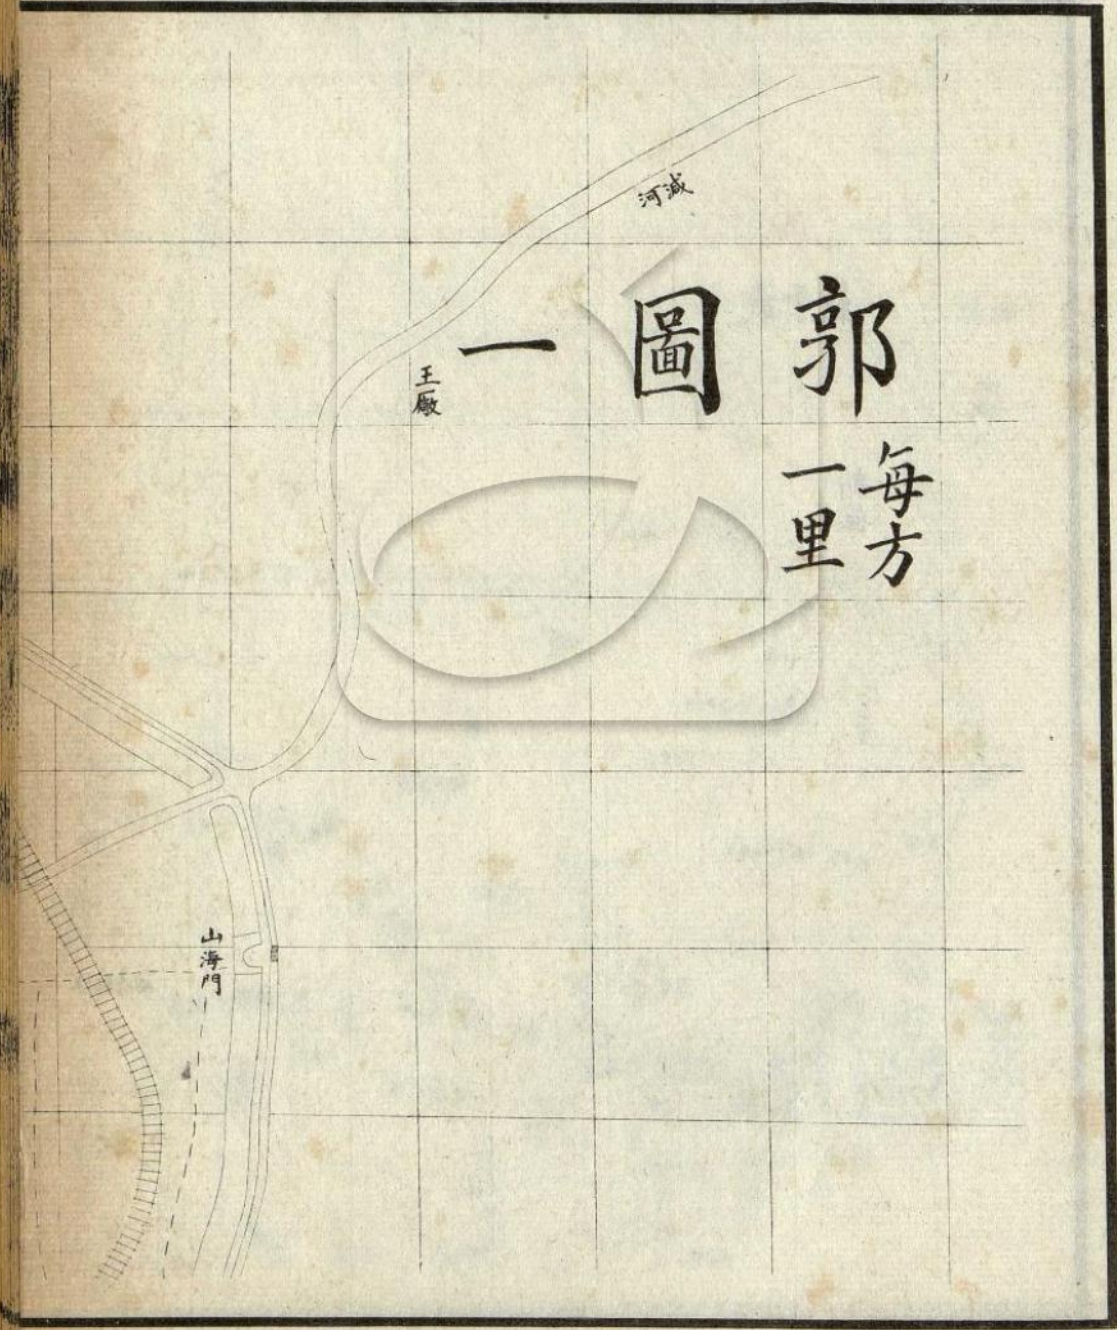 郭圖一
每方
一里
減河
王厰
山海門